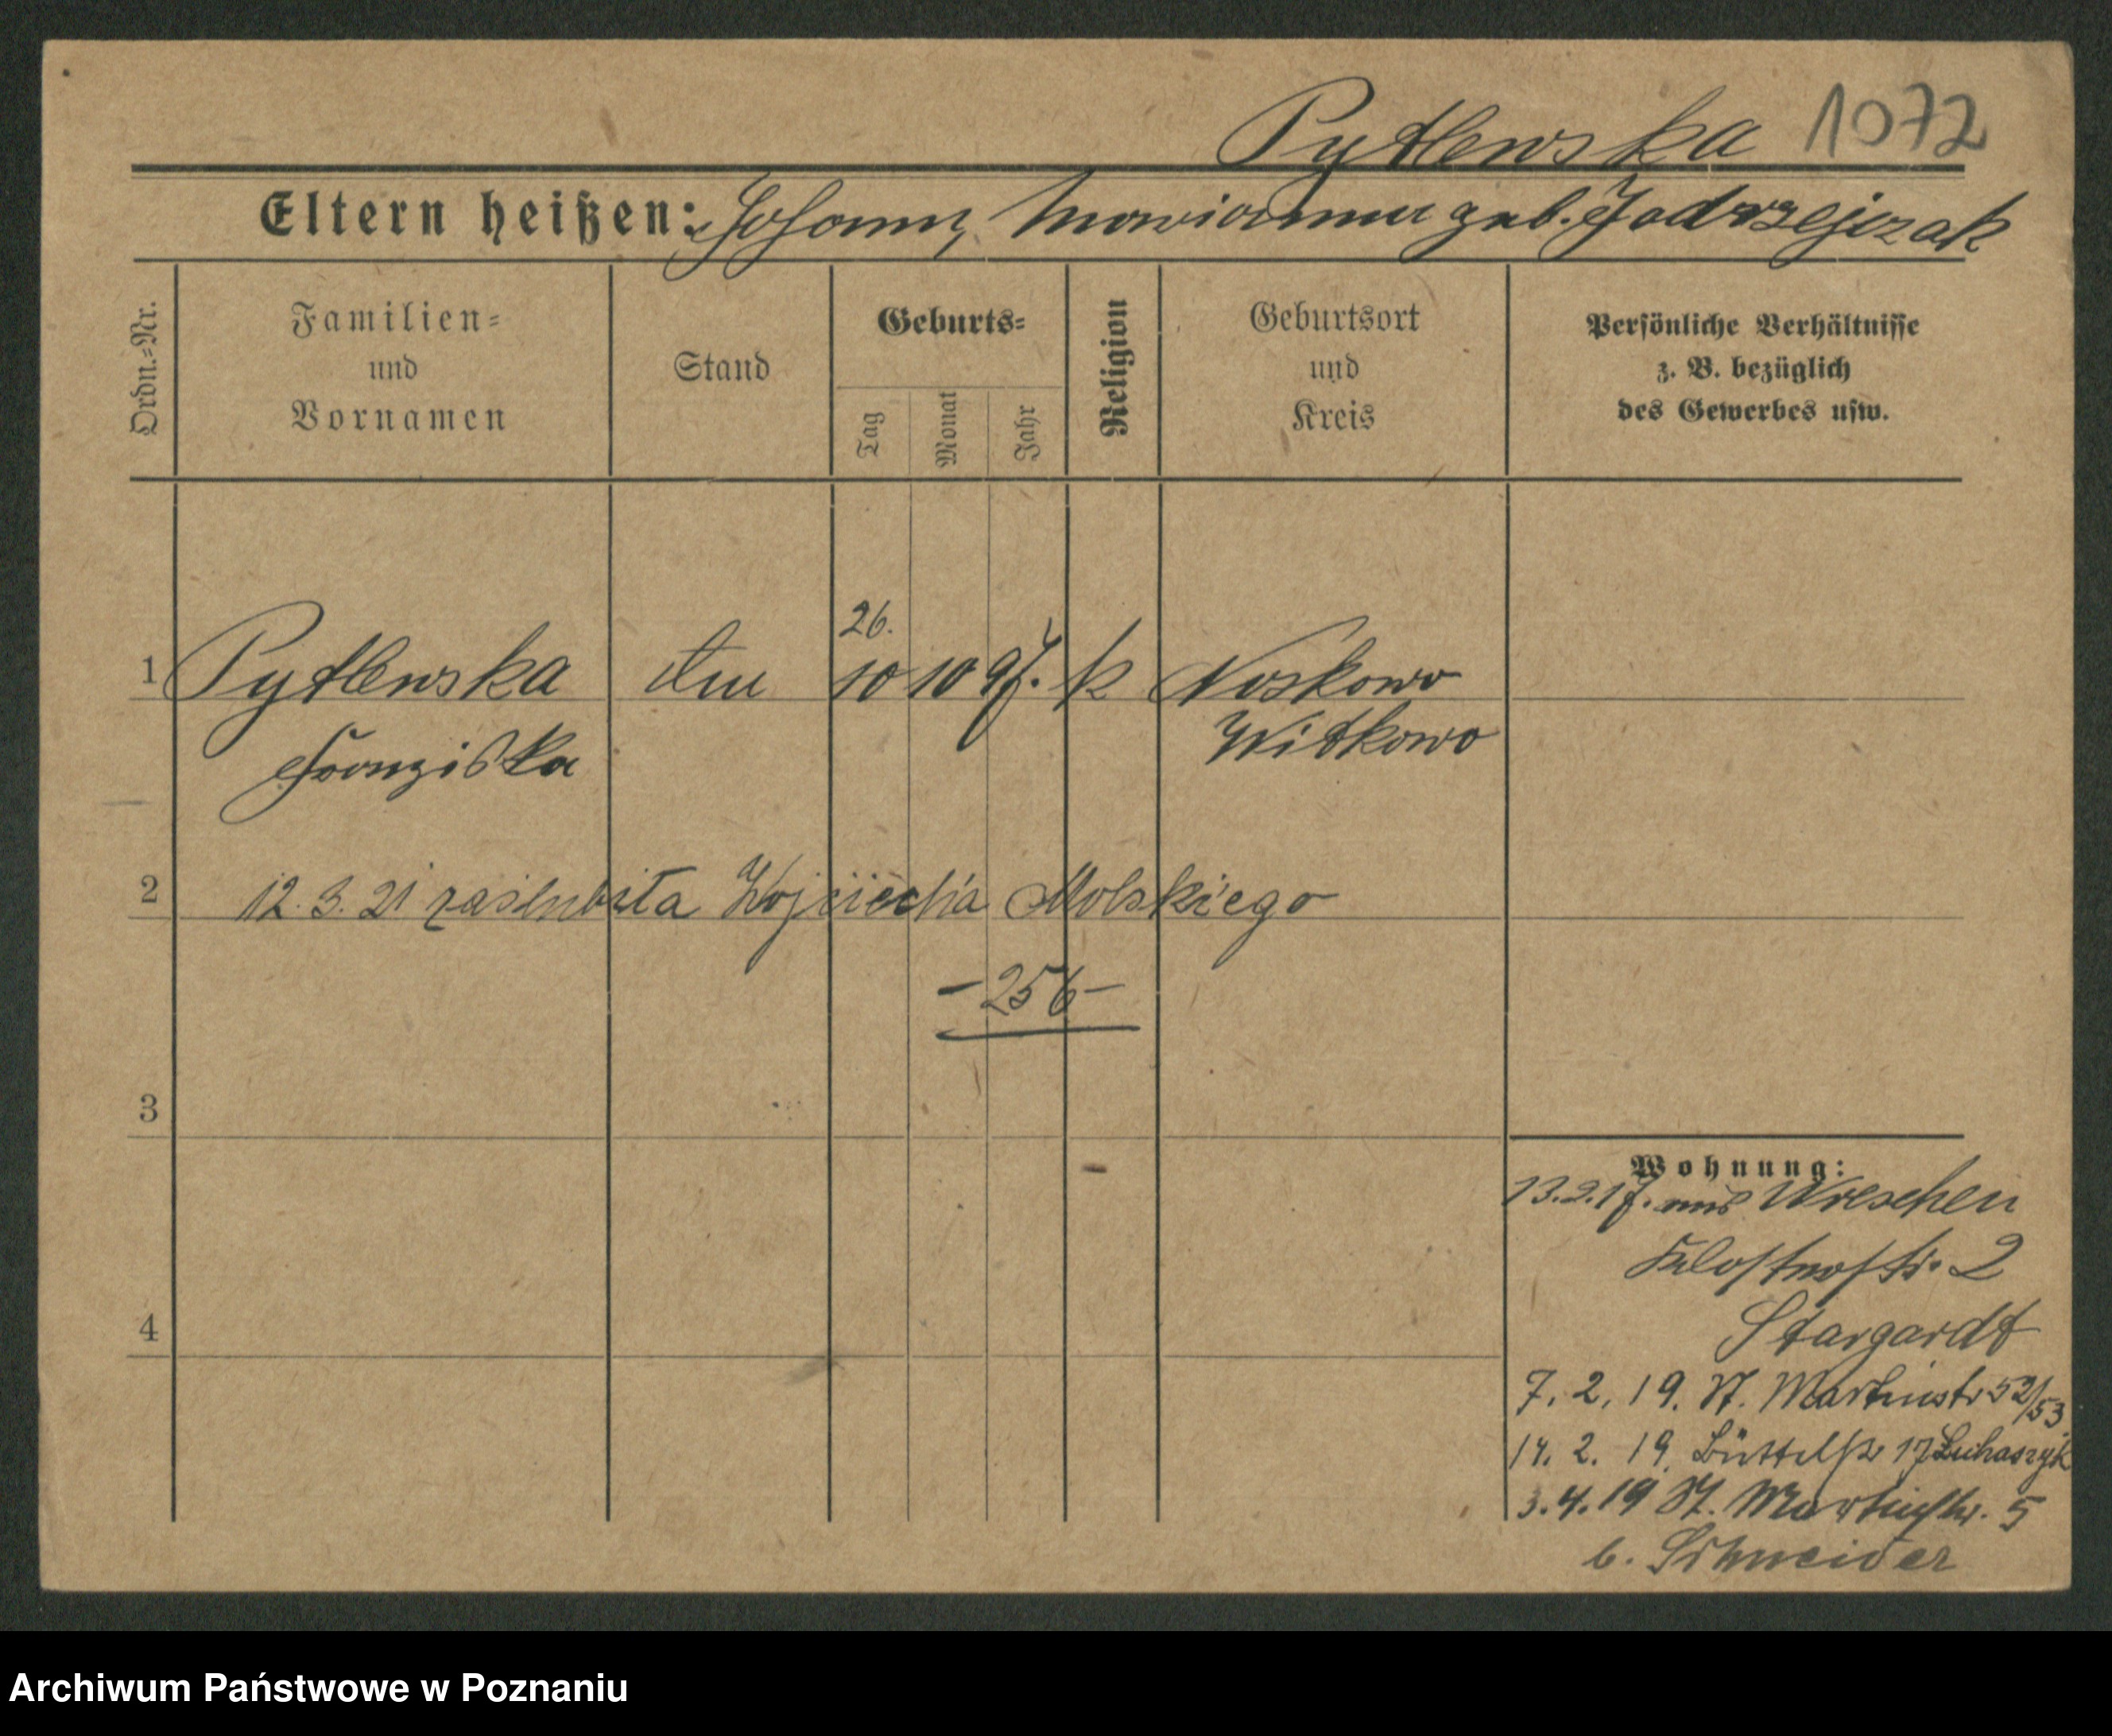 Pytlewska 1072
Eltern heißen: Johann, Marianna geb. Jadrzejczak
Ordn.=Nr.
Familien=
und
Vornamen
Stand
Geburts=
Tag
Monat
Jahr
Religion
Geburtsort
und
Kreis
Persönliche Verhältnisse
z. B. bezüglich
des Gewerbes usw.
26.
1 Pytlewska 10 10 97. k Noskowo
Franziska Witkowo
2 12.3.21 zaślubiła Wojciecha Molskiego
-256-
3
Wohnung:
13.2.17. aus Wreschen
Klosterstr. 2
Stargardt
4
7. 2. 19. St. Martinstr 52/53
14. 2. 19. Büttelstr 17 Luhaszyk
3.4.19 St. Martinstr. 5
b. Schneider
Archiwum Państwowe w Poznaniu